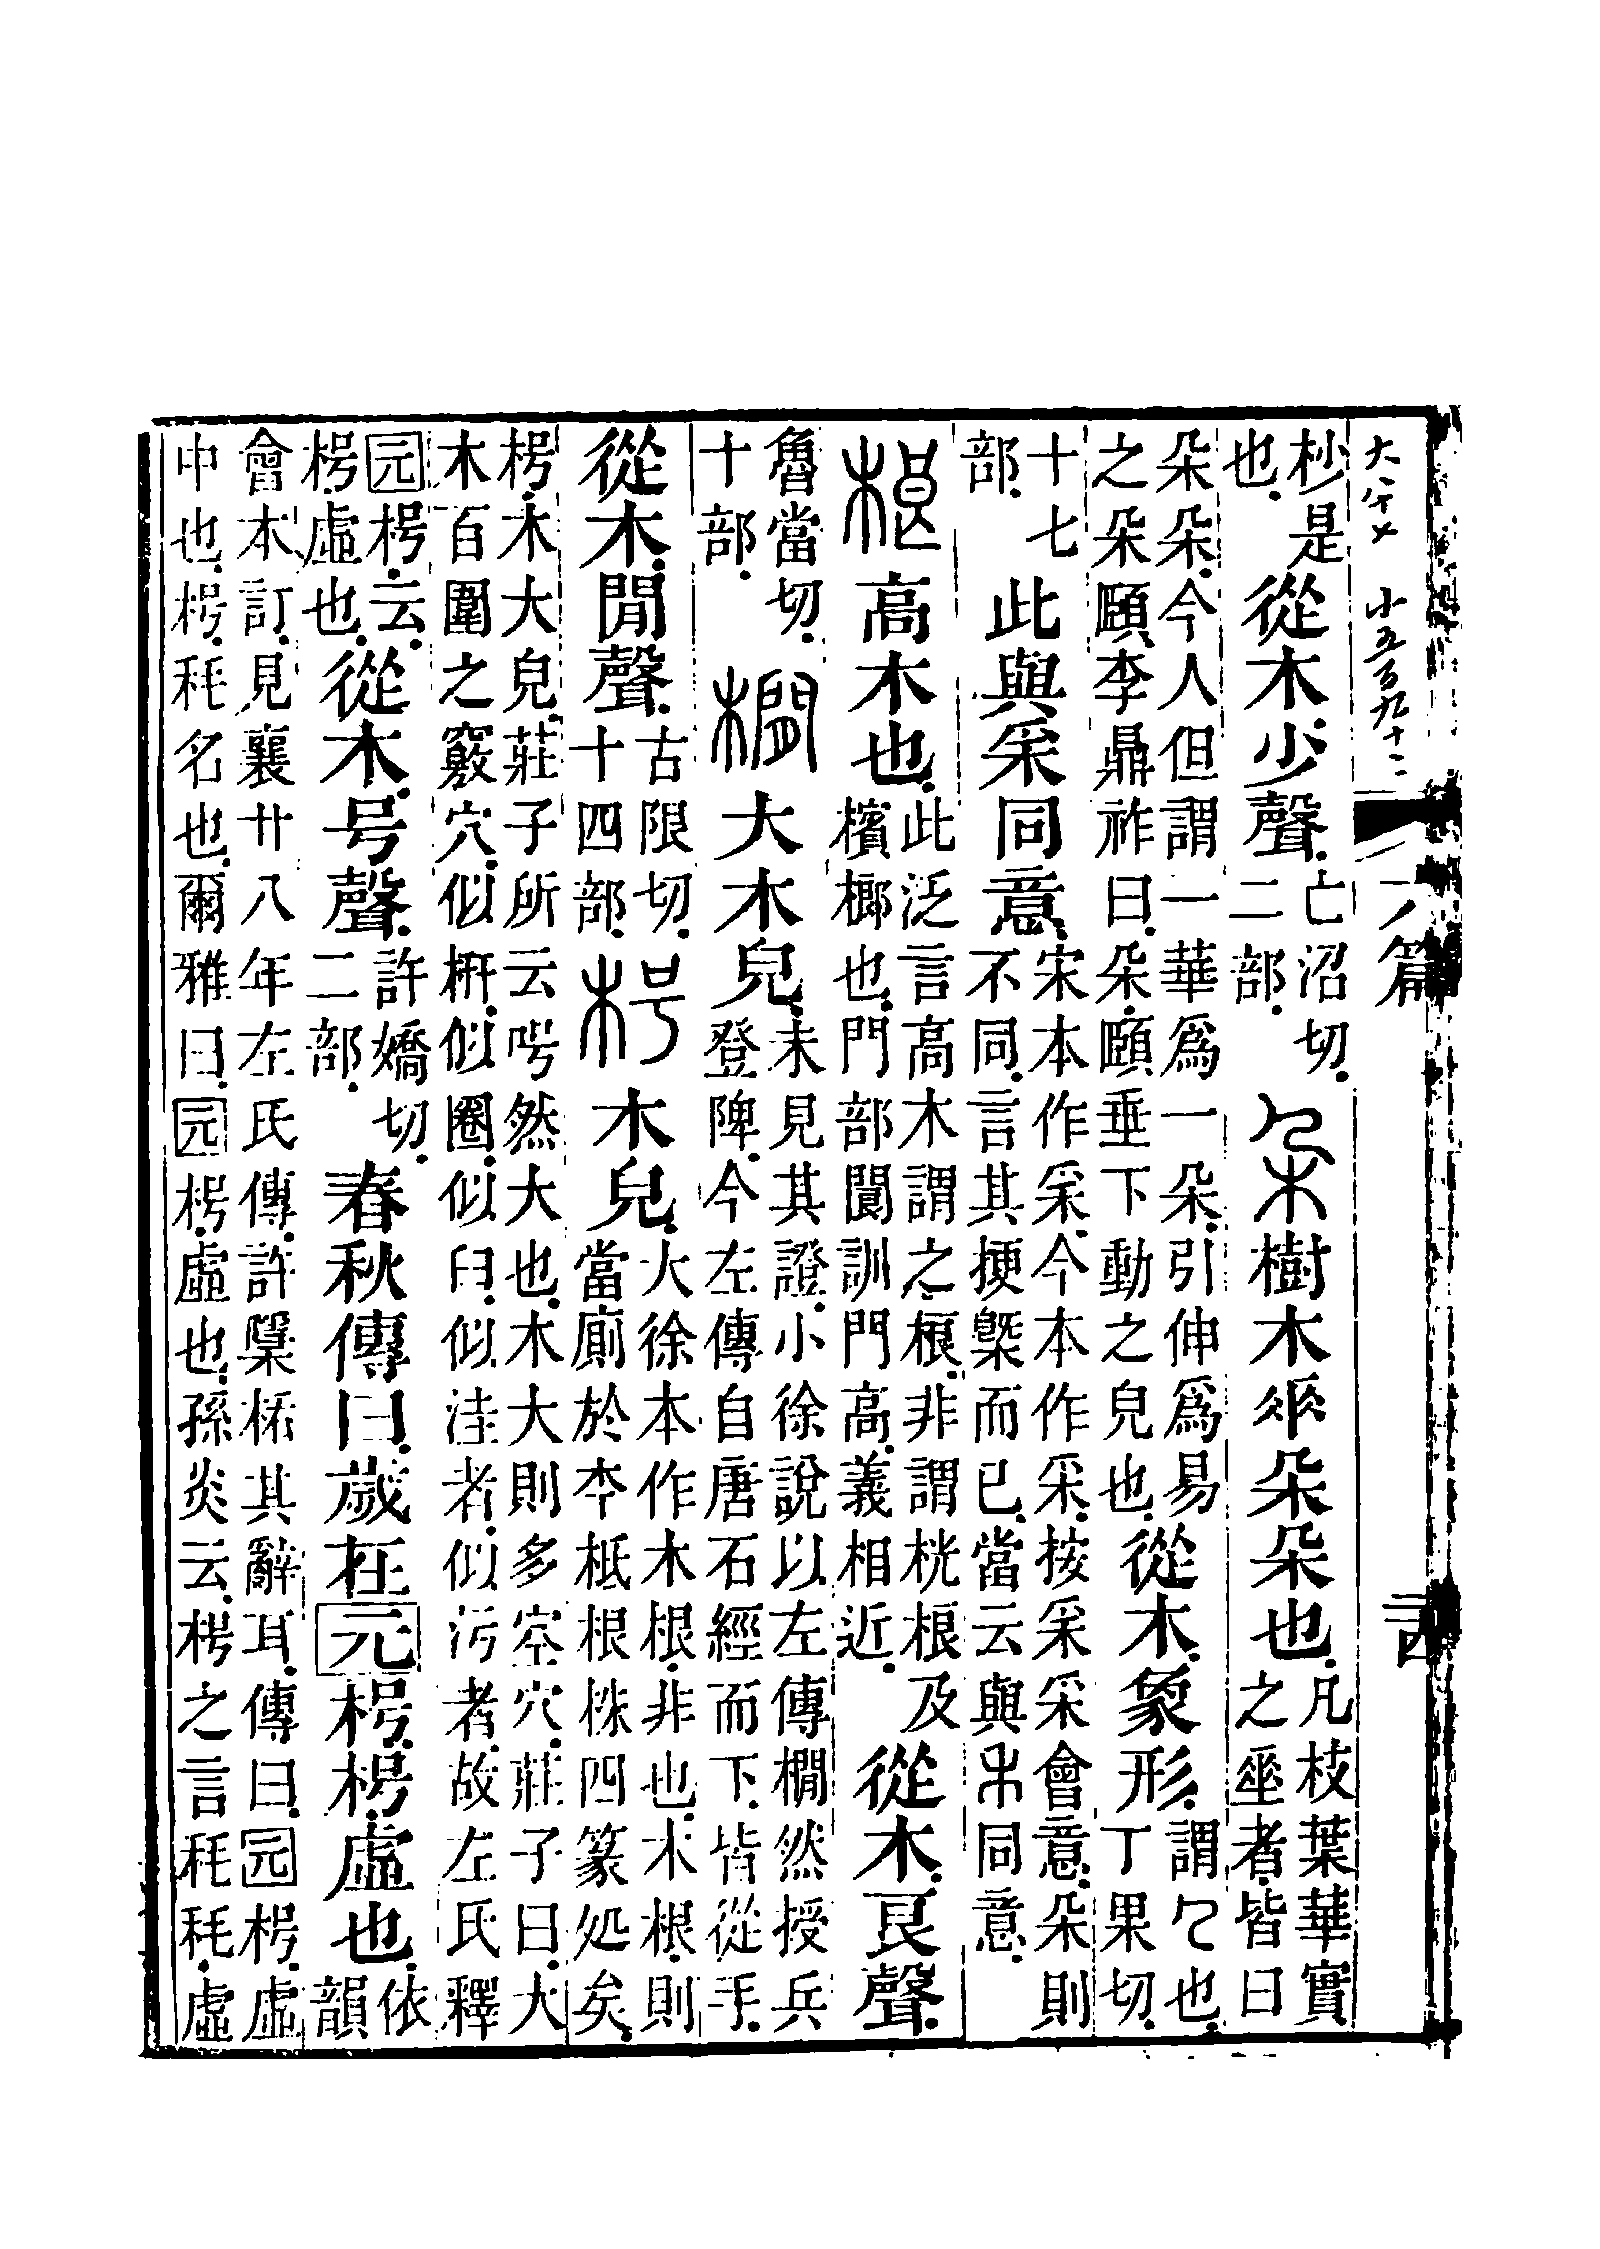 六篇
杪是也。從木少聲。亡沼切。二部。朵樹木𠂹朵朵也。凡枝葉華實之垂者。皆曰
朵朵。今人但謂一華爲一朵。引伸爲易之朵頤李鼎祚曰。朵。頤垂下動之皃也。從木。象形。謂𠘧也。丁果切。
十七部。此與采同意。宋本作采。今本作采。按采采會意。朵則不同。言其挭槩而已。當云與𠂔同意。
桹高木也。此泛言高木謂之桹。非謂桄桹及檳榔也。門部閬訓門高。義相近。從木。良聲。
魯當切。十部。橺大木皃。未見其證。小徐說以左傳橺然授兵登陴。今左傳自唐石經而下。皆從手。
從木。閒聲。古限切。十四部。枵木皃。大徐本作木根。非也。木根。則當廁於本柢根株四篆処矣。
枵。木大皃。莊子所云呺然大也。木大則多空穴。莊子曰。大木百圍之竅穴。似枅。似圈。似臼。似洼者。似污者。故左氏釋
元枵云。枵。虛也。從木。号聲。許嬌切。二部。春秋傳曰。歲在元枵。枵。虛也。依韻
會本訂。見襄廿八年左氏傳。許櫽桰其辭耳。傳曰。元枵。虛中也。枵。秏名也。爾雅曰。元枵。虛也。孫炎云。枵之言秏秏。虛